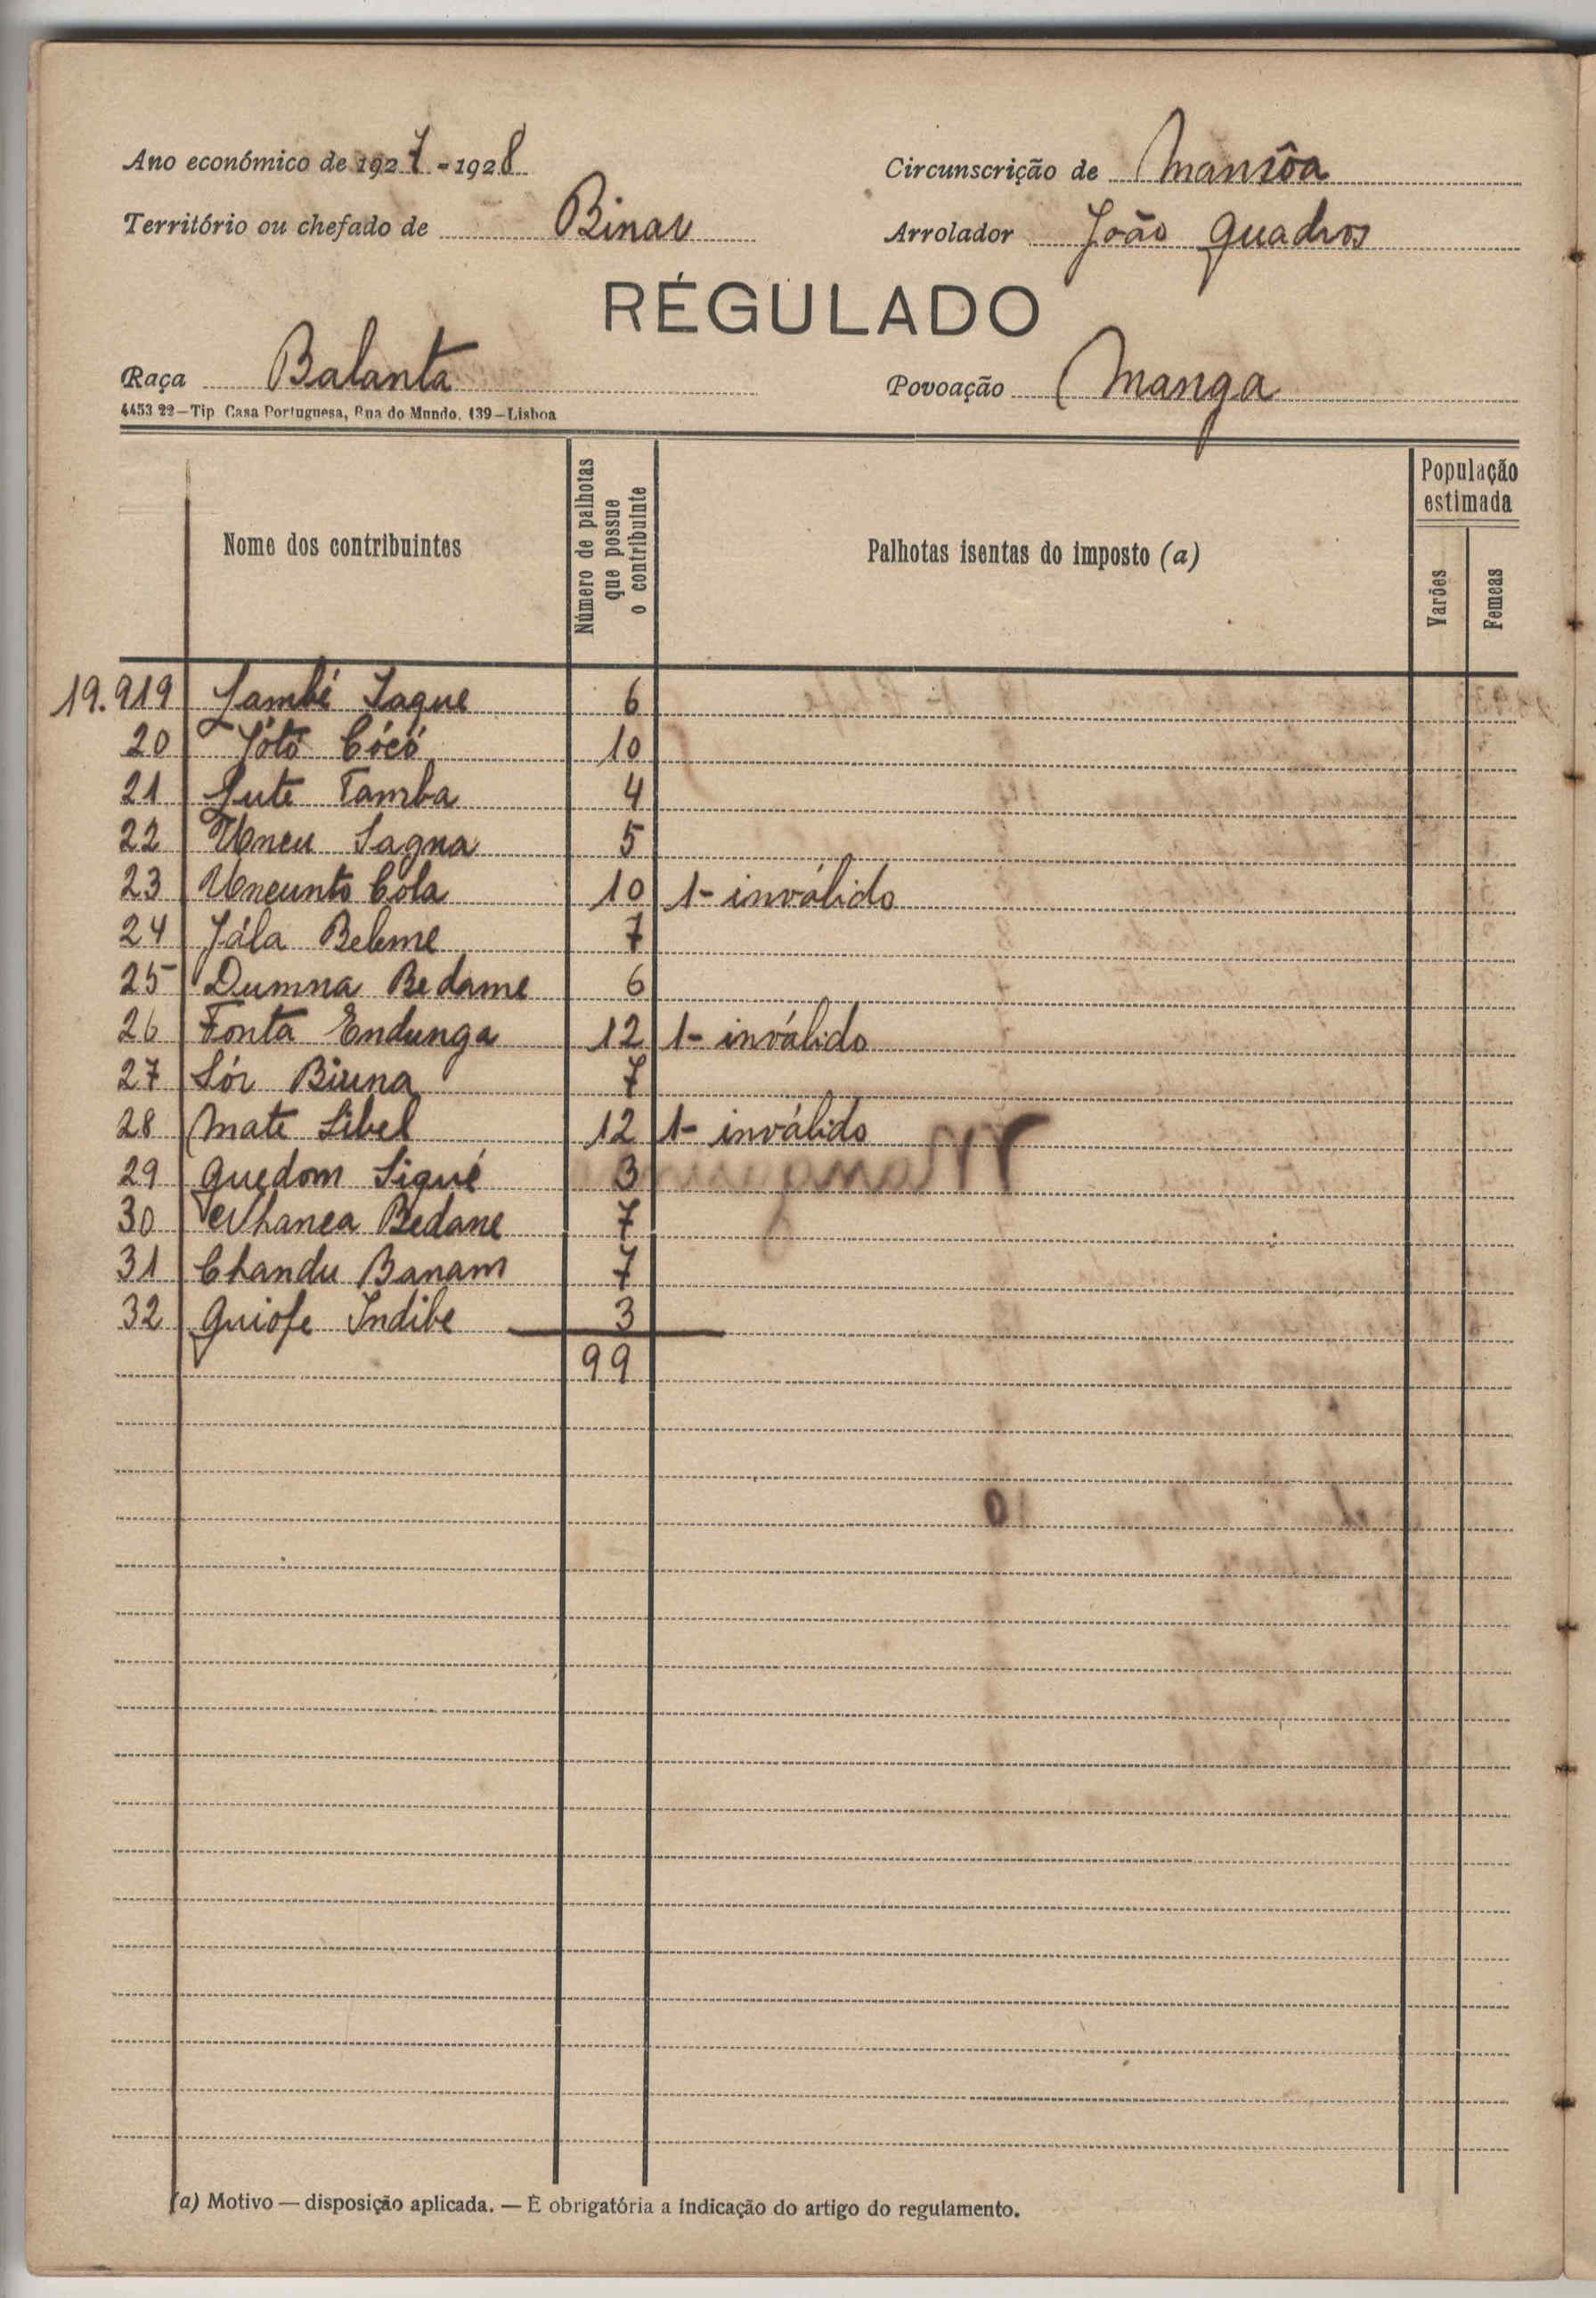 Ano económico de 1927-1928
Circunscrição de Mansôa
Território ou chefado de Binar
Arrolador João Quadros
RÉGULADO
Raça Balanta
Povoação Manga
4453 22—Tip Casa Portuguesa, Rua do Mundo, 139—Lisboa
Nome dos contribuintes
Número de palhotas que possue o contribuinte
Palhotas isentas do imposto (a)
População estimada
Varões
Femeas
19.919 Jambé Iaque 6
20 Jótó Cócó 10
21 Jute Tamba 4
22 Uncu Sagna 5
23 Uncunto Cola 10 1- inválido
24 Jála Beleme 7
25 Dumna Bedame 6
26 Fonta Endunga 12 1- inválido
27 Sór Biuna 7
28 Mate Sibel 12 1- inválido
29 Quedom Siqué 3
30 Nhanca Bedane 7
31 Chandu Banam 7
32 Quiofe Indibe 3
99
(a) Motivo — disposição aplicada. — É obrigatória a indicação do artigo do regulamento.